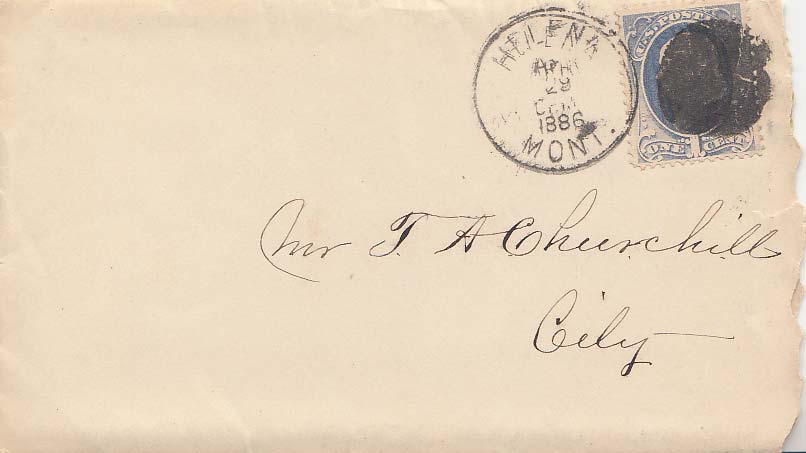 HELENA
APR
29
1886
MONT.
U.S. POST
ONE 1 CENT
Mr T. A Churchill
City